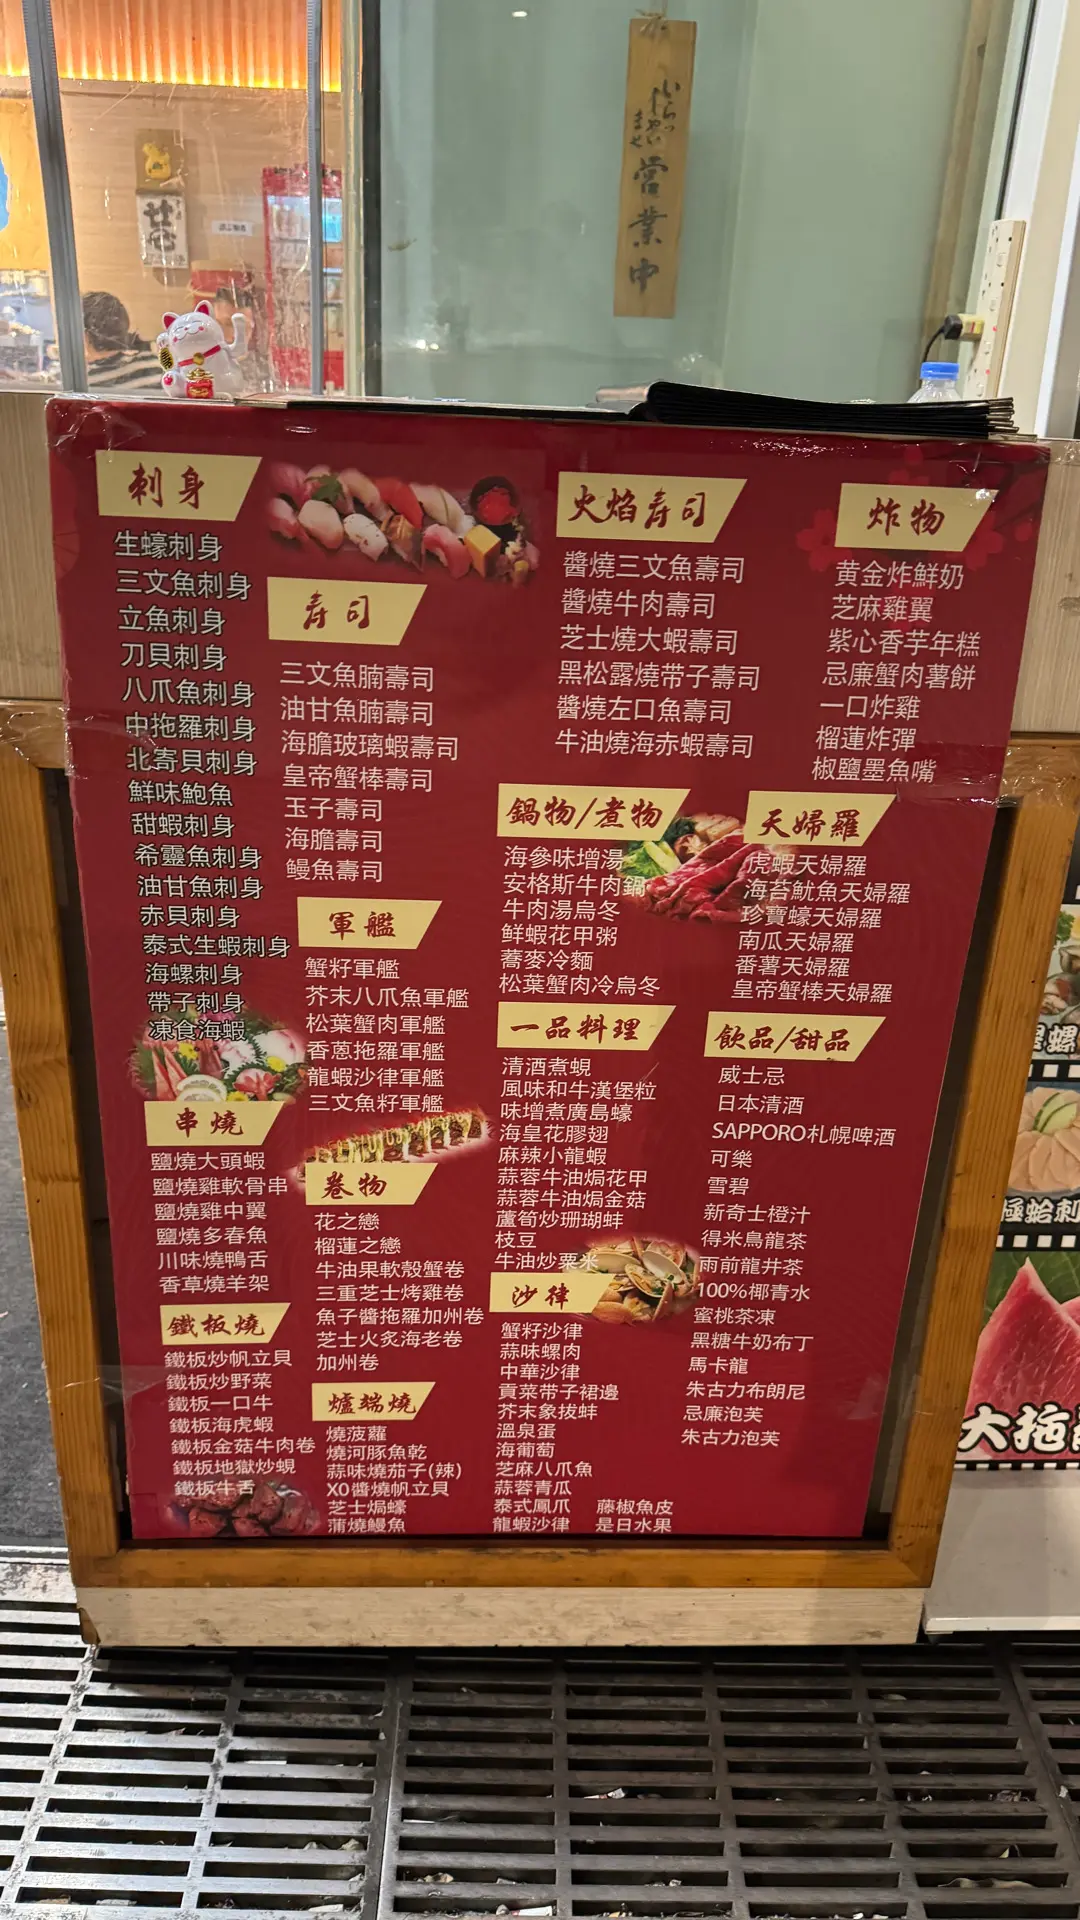 いらっしゃいませ
営業中
刺身
生蠔刺身
三文魚刺身
立魚刺身
刀貝刺身
八爪魚刺身
中拖羅刺身
北寄貝刺身
鮮味鮑魚
甜蝦刺身
希靈魚刺身
油甘魚刺身
赤貝刺身
泰式生蝦刺身
海螺刺身
帶子刺身
凍食海蝦
串燒
鹽燒大頭蝦
鹽燒雞軟骨串
鹽燒雞中翼
鹽燒多春魚
川味燒鴨舌
香草燒羊架
鐵板燒
鐵板炒帆立貝
鐵板炒野菜
鐵板一口牛
鐵板海虎蝦
鐵板金菇牛肉卷
鐵板地獄炒蜆
鐵板牛舌
寿司
三文魚腩壽司
油甘魚腩壽司
海膽玻璃蝦壽司
皇帝蟹棒壽司
玉子壽司
海膽壽司
鰻魚壽司
軍艦
蟹籽軍艦
芥末八爪魚軍艦
松葉蟹肉軍艦
香蔥拖羅軍艦
龍蝦沙律軍艦
三文魚籽軍艦
卷物
花之戀
榴蓮之戀
牛油果軟殼蟹卷
三重芝士烤雞卷
魚子醬拖羅加州卷
芝士火炙海老卷
加州卷
爐端燒
燒菠蘿
燒河豚魚乾
蒜味燒茄子(辣)
XO醬燒帆立貝
芝士焗蠔
蒲燒鰻魚
火焰寿司
醬燒三文魚壽司
醬燒牛肉壽司
芝士燒大蝦壽司
黑松露燒帶子壽司
醬燒左口魚壽司
牛油燒海赤蝦壽司
鍋物/煮物
海參味增湯
安格斯牛肉鍋
牛肉湯烏冬
鮮蝦花甲粥
蕎麥冷麵
松葉蟹肉冷烏冬
一品料理
清酒煮蜆
風味和牛漢堡粒
味增煮廣島蠔
海皇花膠翅
麻辣小龍蝦
蒜蓉牛油焗花甲
蒜蓉牛油焗金菇
蘆筍炒珊瑚蚌
枝豆
牛油炒粟米
沙律
蟹籽沙律
蒜味螺肉
中華沙律
貢菜帶子裙邊
芥末象拔蚌
溫泉蛋
海葡萄
芝麻八爪魚
蒜蓉青瓜
泰式鳳爪 藤椒魚皮
龍蝦沙律 是日水果
炸物
黄金炸鮮奶
芝麻雞翼
紫心香芋年糕
忌廉蟹肉薯餅
一口炸雞
榴蓮炸彈
椒鹽墨魚嘴
天婦羅
虎蝦天婦羅
海苔魷魚天婦羅
珍寶蠔天婦羅
南瓜天婦羅
番薯天婦羅
皇帝蟹棒天婦羅
飲品/甜品
威士忌
日本清酒
SAPPORO札幌啤酒
可樂
雪碧
新奇士橙汁
得米烏龍茶
雨前龍井茶
100%椰青水
蜜桃茶凍
黑糖牛奶布丁
馬卡龍
朱古力布朗尼
忌廉泡芙
朱古力泡芙
大拖